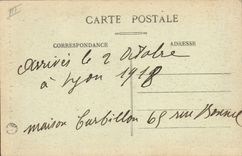 III
CARTE POSTALE
CORRESPONDANCE ADRESSE
arrivés le 2 Octobre
à Lyon 1918
maison Carbillon 65 rue Bonnel